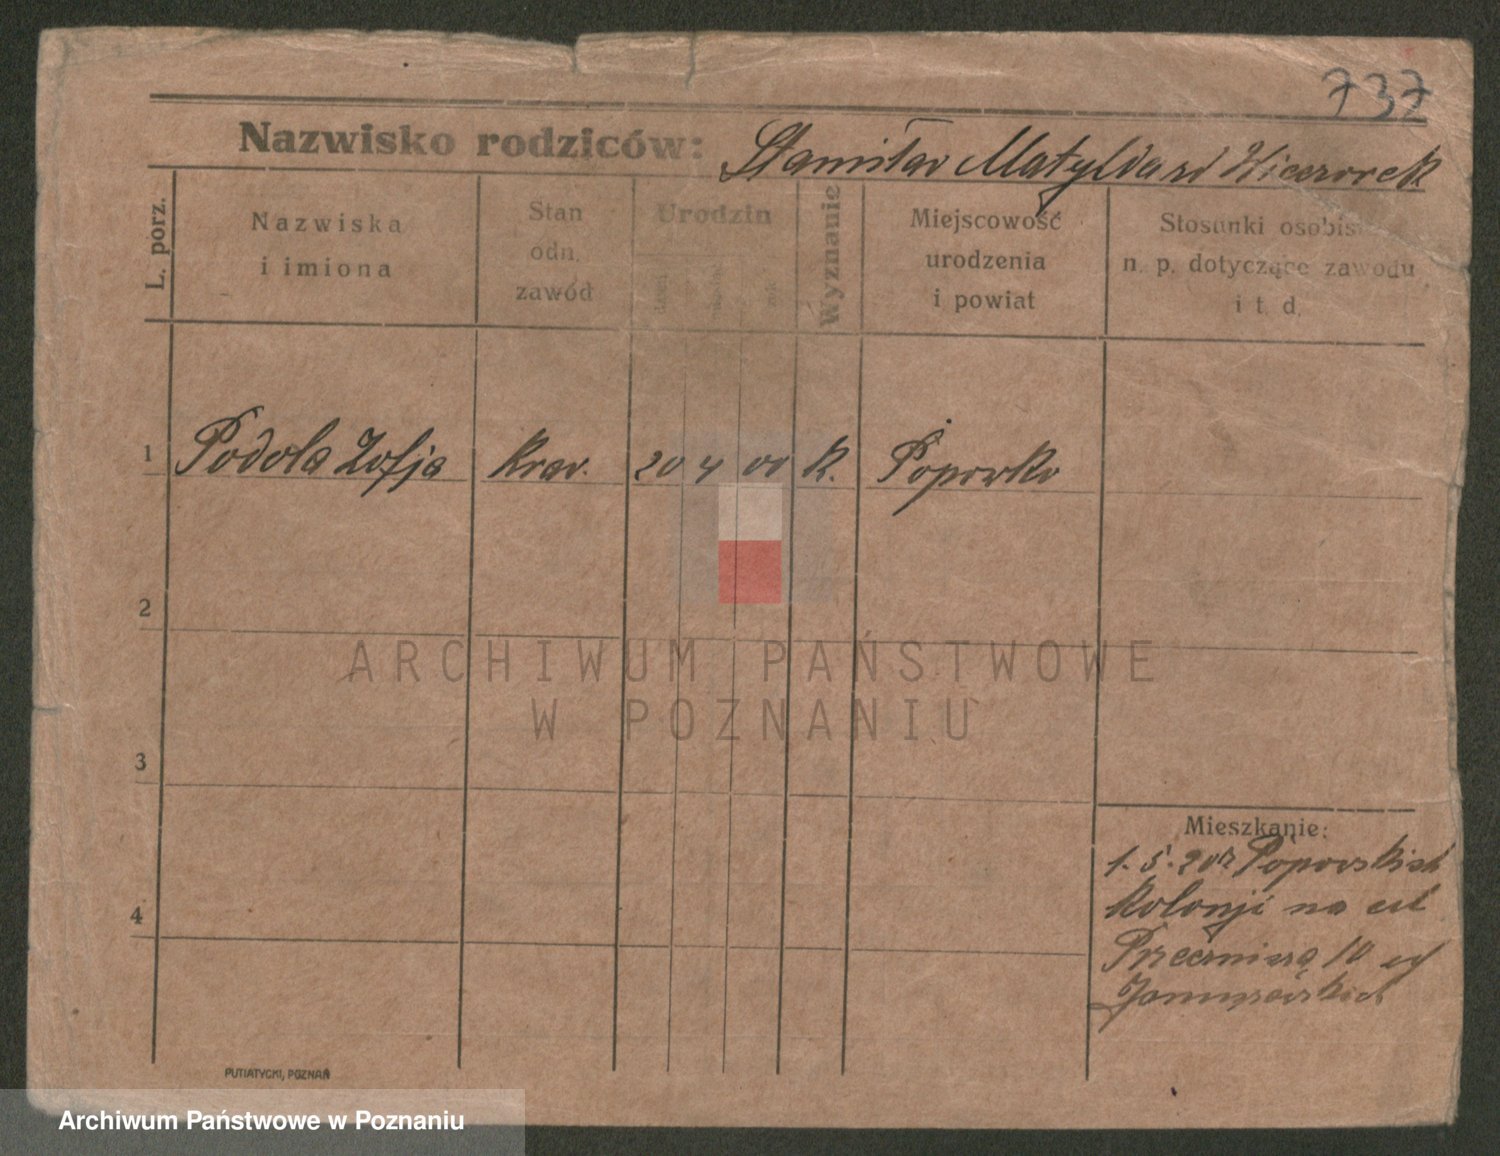 737
Nazwisko rodziców: Stanisław Matylda zd Wieczorek
L. porz.
Nazwiska i imiona
Stan odn. zawód
Urodzin
Wyznanie
Miejscowość urodzenia i powiat
Stosunki osobis n. p. dotyczące zawodu i t. d.
1 Podola Zofja Kraw. 20 4 00 K. Popowko
2
3
4
Mieszkanie:
1. 5. 20
Kolonji na
10
PUTIATYCKI, POZNAŃ
ARCHIWUM PAŃSTWOWE
W POZNANIU
Archiwum Państwowe w Poznaniu